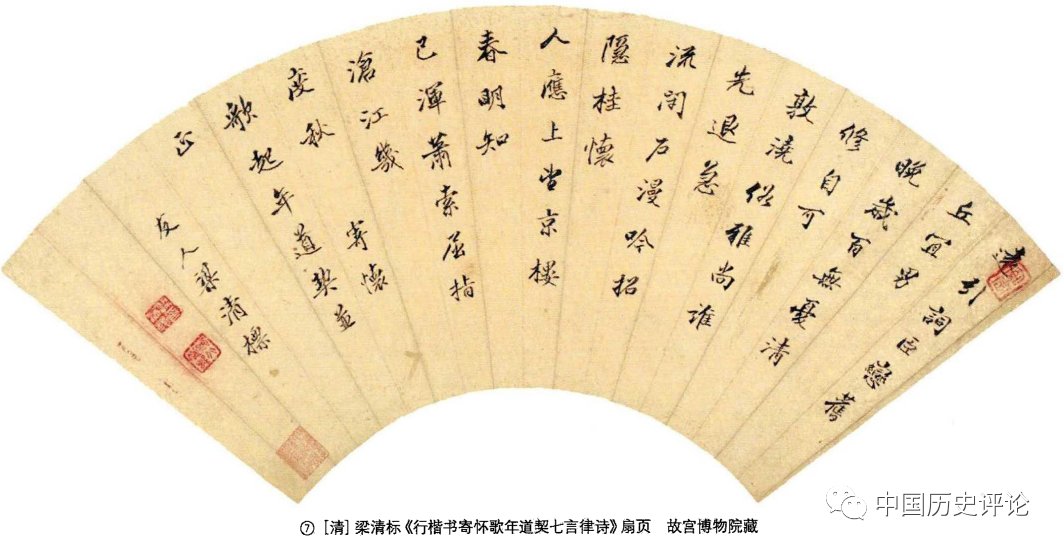 遽引詞臣戀舊
丘宜男
晚歲百無憂清
修自可
敦澆俗雅尚誰
先退急
流閏石漫吟招
隱桂懷
人應上望京樓
春明知
已渾蕭索屈指
滄江幾
度秋 寄懷
歌起年道契並
正
友人梁清標
中国历史评论
⑦ [清] 梁清标《行楷书寄怀歌年道契七言律诗》扇页 故宫博物院藏